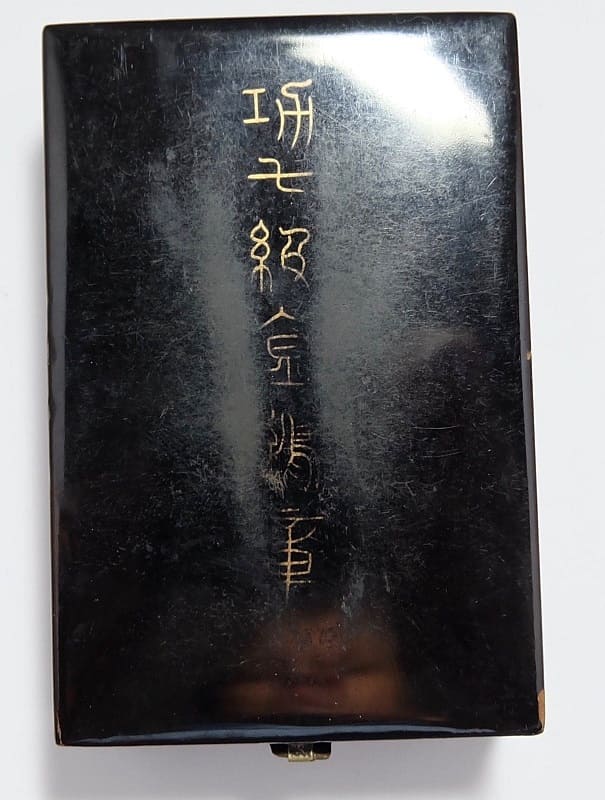 功七級金鵄章